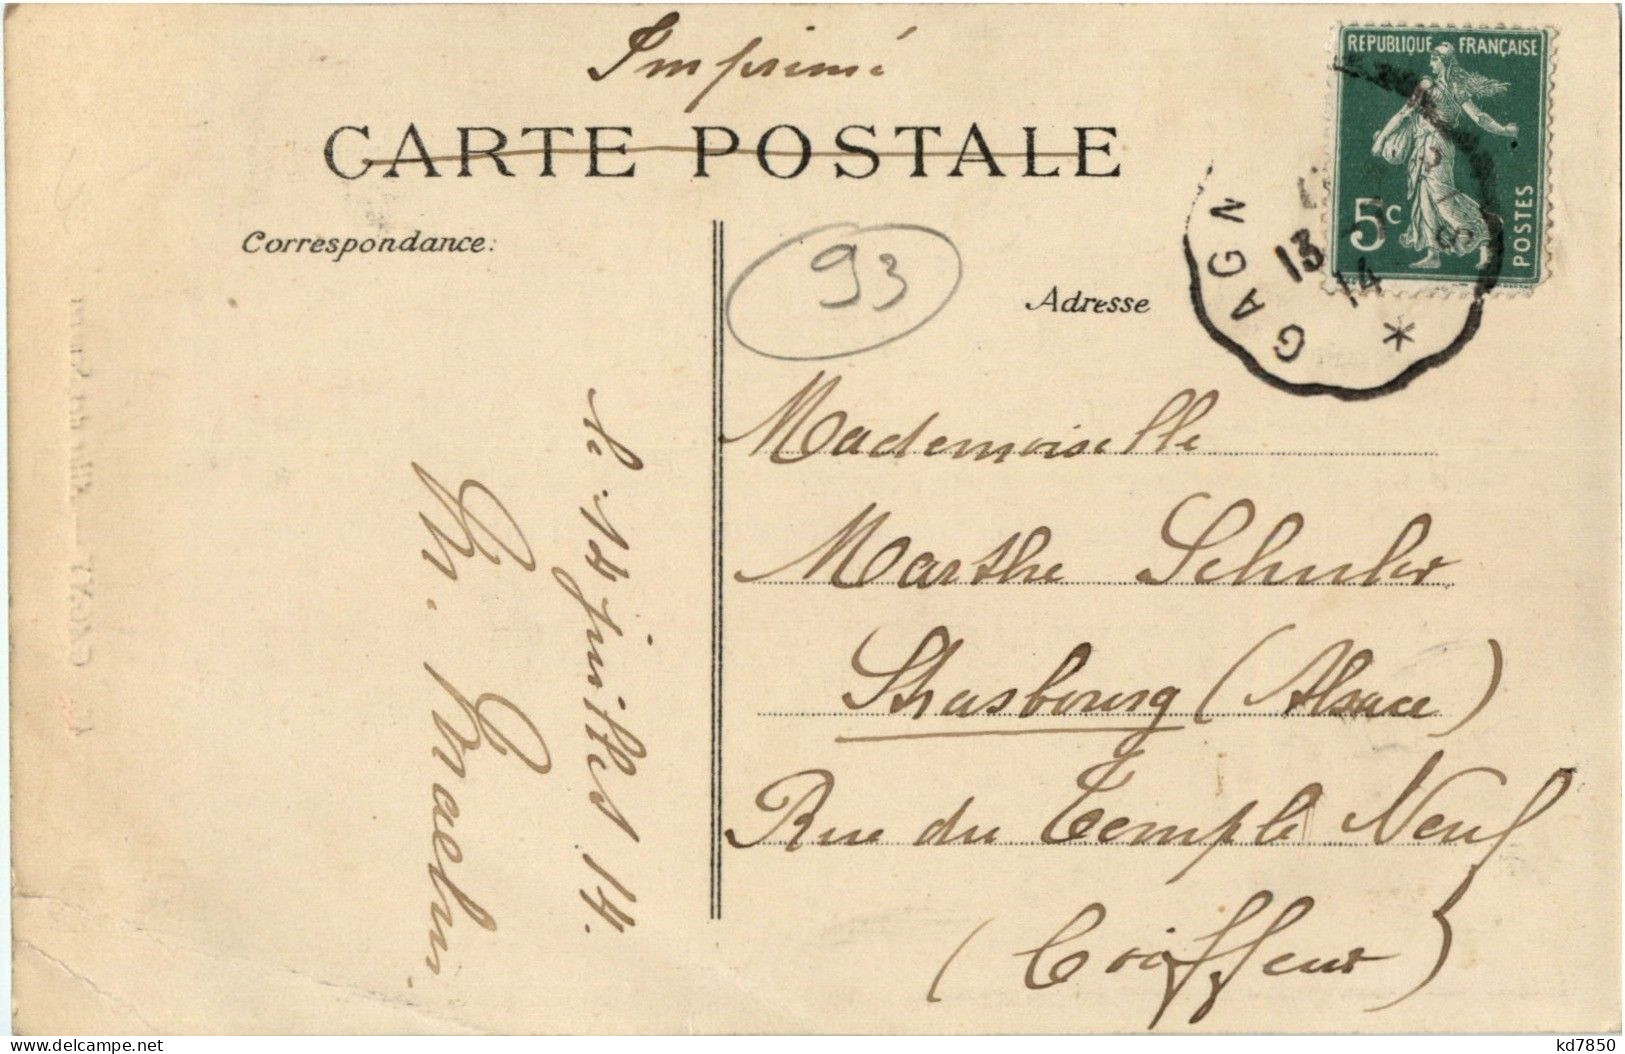 Imprimé
CARTE POSTALE
REPUBLIQUE FRANÇAISE
5c
POSTES
GAGN
13
14
*
Correspondance:
93
Adresse
Mademoiselle
Marthe Schuler
Strasbourg (Alsace)
Rue du Temple Neuf
(Coiffeur)
le 14 juillet 14.
kd7850